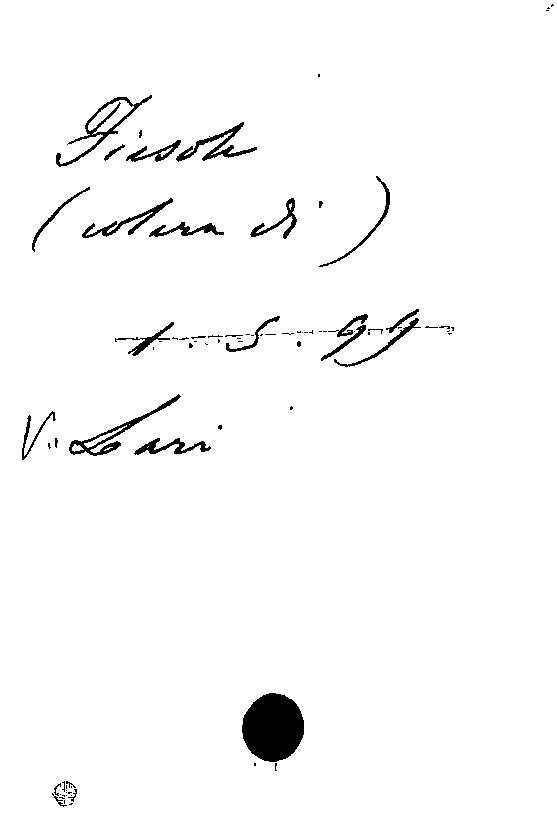 Fiesole
( di )
1.5.99
V. Lari